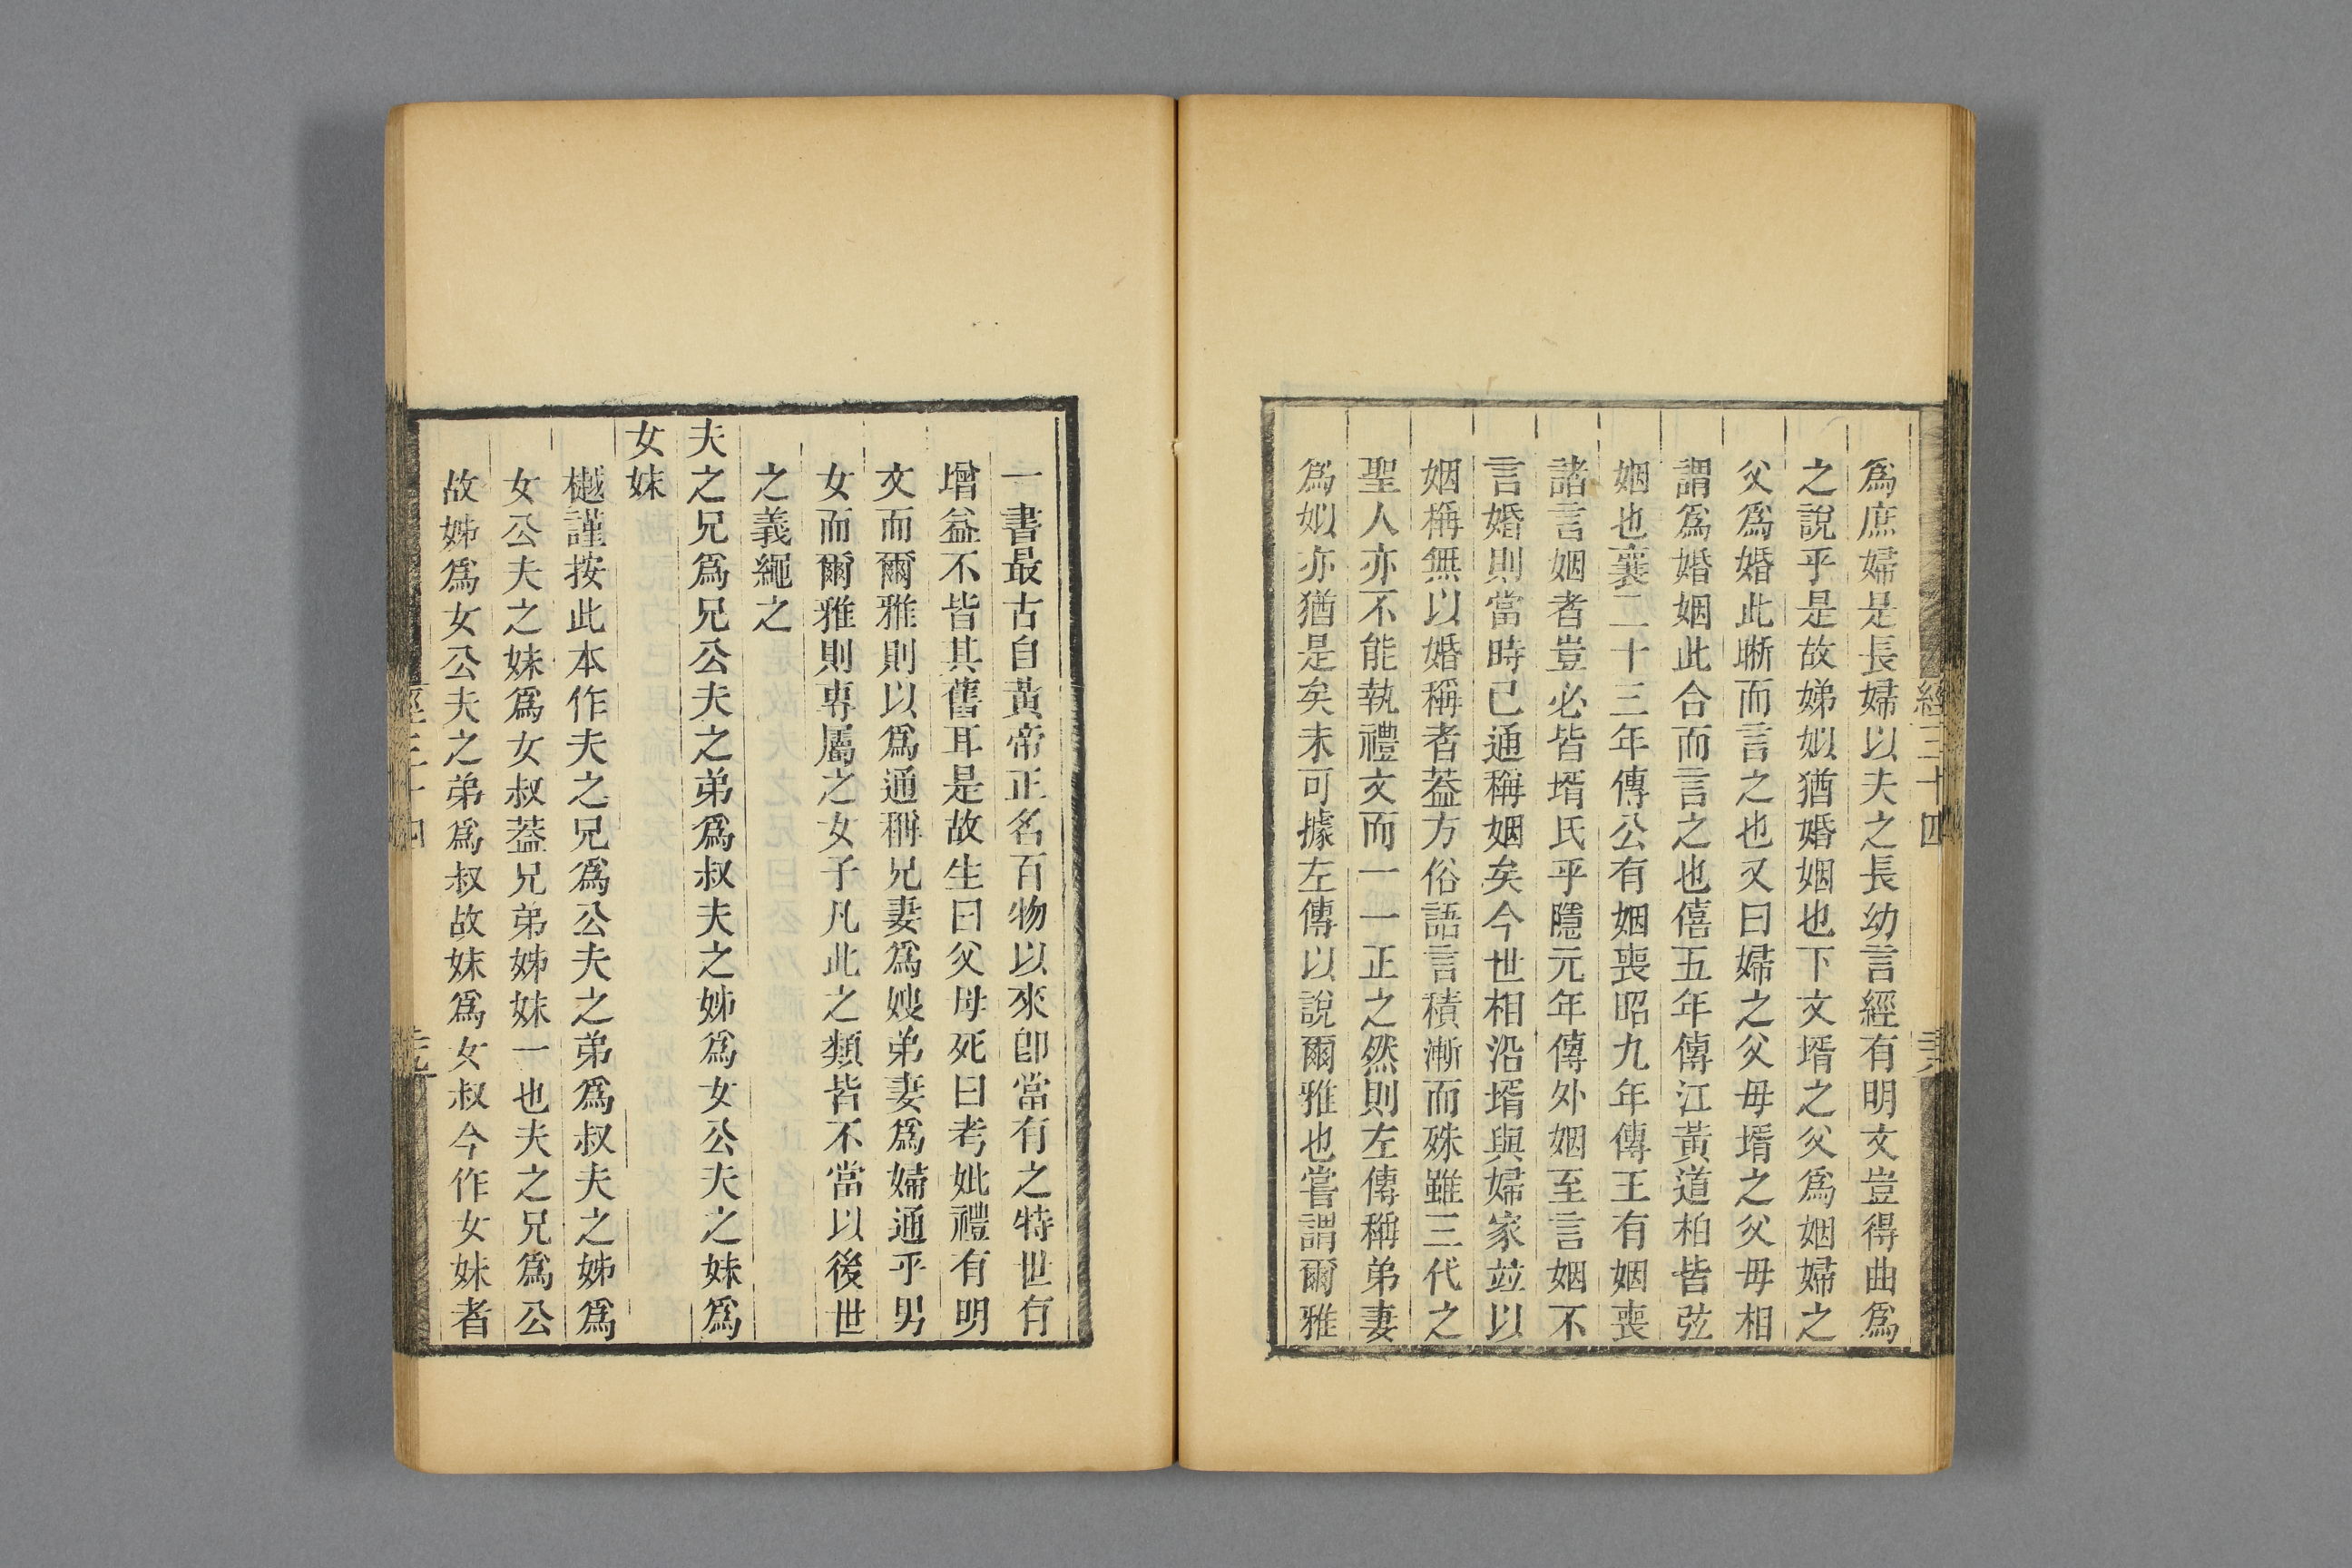 爲庶婦是長婦以夫之長幼言經有明文豈得曲爲
之說乎是故娣姒猶婚姻也下文壻之父爲姻婦之
父爲婚此晣而言之也又曰婦之父母壻之父母相
謂爲婚姻此合而言之也僖五年傳江黃道柏皆弦
姻也襄二十三年傳公有姻喪昭九年傳王有姻喪
諸言姻者豈必皆壻氏乎隱元年傳外姻至言姻不
言婚則當時已通稱姻矣今世相沿壻與婦家竝以
姻稱無以婚稱者葢方俗語言積漸而殊雖三代之
聖人亦不能執禮文而一一正之然則左傳稱弟妻
爲姒亦猶是矣未可據左傳以說爾雅也嘗謂爾雅
經三十四
一書最古自黃帝正名百物以來卽當有之特世有
增益不皆其舊耳是故生曰父母死曰考妣禮有明
文而爾雅則以爲通稱兄妻爲嫂弟妻爲婦通乎男
女而爾雅則專屬之女子凡此之類皆不當以後世
之義繩之
夫之兄爲兄公夫之弟爲叔夫之姊爲女公夫之妹爲
女妹
樾謹按此本作夫之兄爲公夫之弟爲叔夫之姊爲
女公夫之妹爲女叔葢兄弟姊妹一也夫之兄爲公
故姊爲女公夫之弟爲叔故妹爲女叔今作女妹者